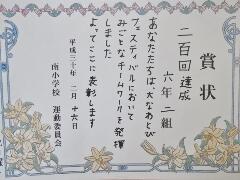 賞状
二百回達成
六年二組
あなたたちは大なわとび
フェスティバルにおいて
みごとなチームワークを発揮
しました
よってここに表彰します
平成三十年二月十六日
南小学校 運動委員会